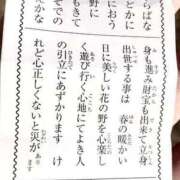 らばな
どかに
におう
野に
もきて
くての
かな
身も進み財宝も出来て立身
出世する事は 春の暖かい
日に美しい花の野を心楽し
く遊び行く心地にてよき人
の引立にあずかります け
れど心正しくないと災があ